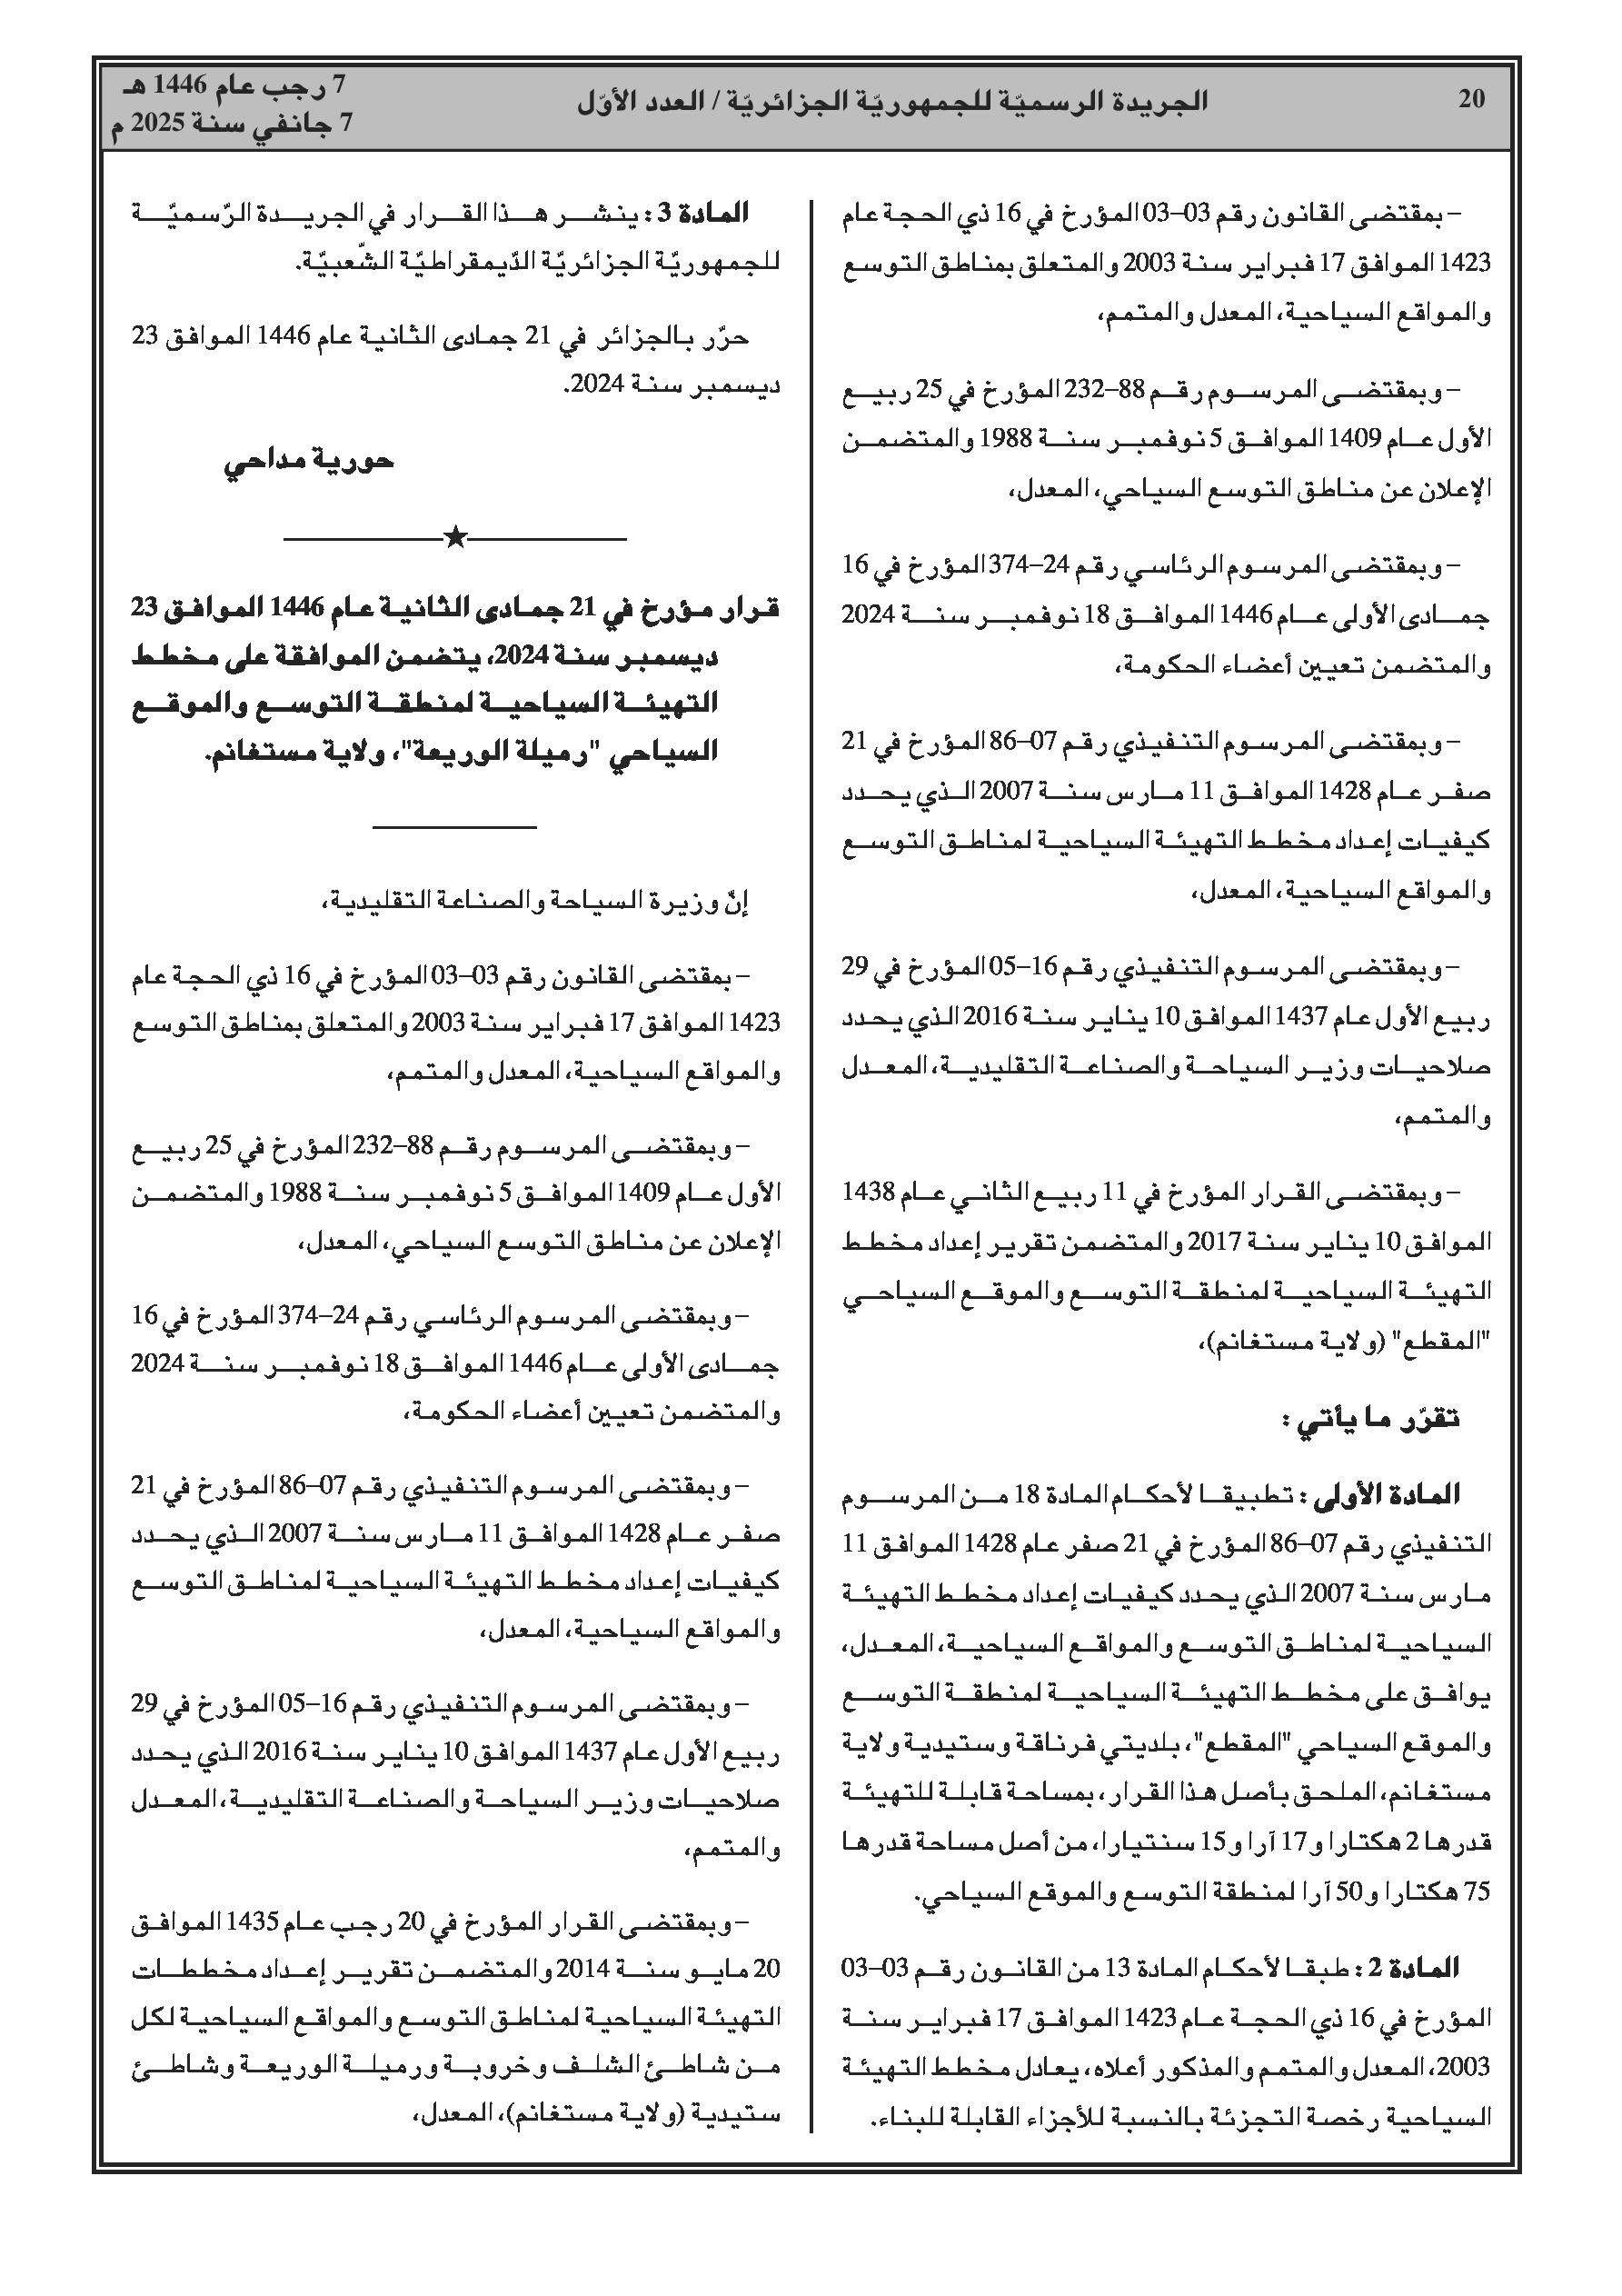 20
الجريدة الرسميّة للجمهوريّة الجزائريّة / العدد الأوّل
7 رجب عام 1446 هـ
7 جانفي سنة 2025 م
– بمقتضى القانون رقم 03–03 المؤرخ في 16 ذي الحجة عام
1423 الموافق 17 فبراير سنة 2003 والمتعلق بمناطق التوسع
والمواقع السياحية، المعدل والمتمم،
– وبمقتضى المرسوم رقم 88–232 المؤرخ في 25 ربيع
الأول عام 1409 الموافق 5 نوفمبر سنة 1988 والمتضمن
الإعلان عن مناطق التوسع السياحي، المعدل،
– وبمقتضى المرسوم الرئاسي رقم 24–374 المؤرخ في 16
جمادى الأولى عام 1446 الموافق 18 نوفمبر سنة 2024
والمتضمن تعيين أعضاء الحكومة،
– وبمقتضى المرسوم التنفيذي رقم 07–86 المؤرخ في 21
صفر عام 1428 الموافق 11 مارس سنة 2007 الذي يحدد
كيفيات إعداد مخطط التهيئة السياحية لمناطق التوسع
والمواقع السياحية، المعدل،
– وبمقتضى المرسوم التنفيذي رقم 16–05 المؤرخ في 29
ربيع الأول عام 1437 الموافق 10 يناير سنة 2016 الذي يحدد
صلاحيات وزير السياحة والصناعة التقليدية، المعدل
والمتمم،
– وبمقتضى القرار المؤرخ في 11 ربيع الثاني عام 1438
الموافق 10 يناير سنة 2017 والمتضمن تقرير إعداد مخطط
التهيئة السياحية لمنطقة التوسع والموقع السياحي
"المقطع" (ولاية مستغانم)،
تقرّر ما يأتي :
المادة الأولى : تطبيقا لأحكام المادة 18 من المرسوم
التنفيذي رقم 07–86 المؤرخ في 21 صفر عام 1428 الموافق 11
مارس سنة 2007 الذي يحدد كيفيات إعداد مخطط التهيئة
السياحية لمناطق التوسع والمواقع السياحية، المعدل،
يوافق على مخطط التهيئة السياحية لمنطقة التوسع
والموقع السياحي "المقطع"، بلديتي فرناقة وستيدية ولاية
مستغانم، الملحق بأصل هذا القرار، بمساحة قابلة للتهيئة
قدرها 2 هكتارا و17 آرا و15 سنتيارا، من أصل مساحة قدرها
75 هكتارا و50 آرا لمنطقة التوسع والموقع السياحي.
المادة 2 : طبقا لأحكام المادة 13 من القانون رقم 03–03
المؤرخ في 16 ذي الحجة عام 1423 الموافق 17 فبراير سنة
2003، المعدل والمتمم والمذكور أعلاه، يعادل مخطط التهيئة
السياحية رخصة التجزئة بالنسبة للأجزاء القابلة للبناء.
المادة 3 : ينشر هذا القرار في الجريدة الرّسميّة
للجمهوريّة الجزائريّة الدّيمقراطيّة الشّعبيّة.
حرّر بالجزائر في 21 جمادى الثانية عام 1446 الموافق 23
ديسمبر سنة 2024.
حورية مداحي
قرار مؤرخ في 21 جمادى الثانية عام 1446 الموافق 23
ديسمبر سنة 2024، يتضمن الموافقة على مخطط
التهيئة السياحية لمنطقة التوسع والموقع
السياحي "رميلة الوريعة"، ولاية مستغانم.
إنّ وزيرة السياحة والصناعة التقليدية،
– بمقتضى القانون رقم 03–03 المؤرخ في 16 ذي الحجة عام
1423 الموافق 17 فبراير سنة 2003 والمتعلق بمناطق التوسع
والمواقع السياحية، المعدل والمتمم،
– وبمقتضى المرسوم رقم 88–232 المؤرخ في 25 ربيع
الأول عام 1409 الموافق 5 نوفمبر سنة 1988 والمتضمن
الإعلان عن مناطق التوسع السياحي، المعدل،
– وبمقتضى المرسوم الرئاسي رقم 24–374 المؤرخ في 16
جمادى الأولى عام 1446 الموافق 18 نوفمبر سنة 2024
والمتضمن تعيين أعضاء الحكومة،
– وبمقتضى المرسوم التنفيذي رقم 07–86 المؤرخ في 21
صفر عام 1428 الموافق 11 مارس سنة 2007 الذي يحدد
كيفيات إعداد مخطط التهيئة السياحية لمناطق التوسع
والمواقع السياحية، المعدل،
– وبمقتضى المرسوم التنفيذي رقم 16–05 المؤرخ في 29
ربيع الأول عام 1437 الموافق 10 يناير سنة 2016 الذي يحدد
صلاحيات وزير السياحة والصناعة التقليدية، المعدل
والمتمم،
– وبمقتضى القرار المؤرخ في 20 رجب عام 1435 الموافق
20 مايو سنة 2014 والمتضمن تقرير إعداد مخططات
التهيئة السياحية لمناطق التوسع والمواقع السياحية لكل
من شاطئ الشلف وخروبة ورميلة الوريعة وشاطئ
ستيدية (ولاية مستغانم)، المعدل،